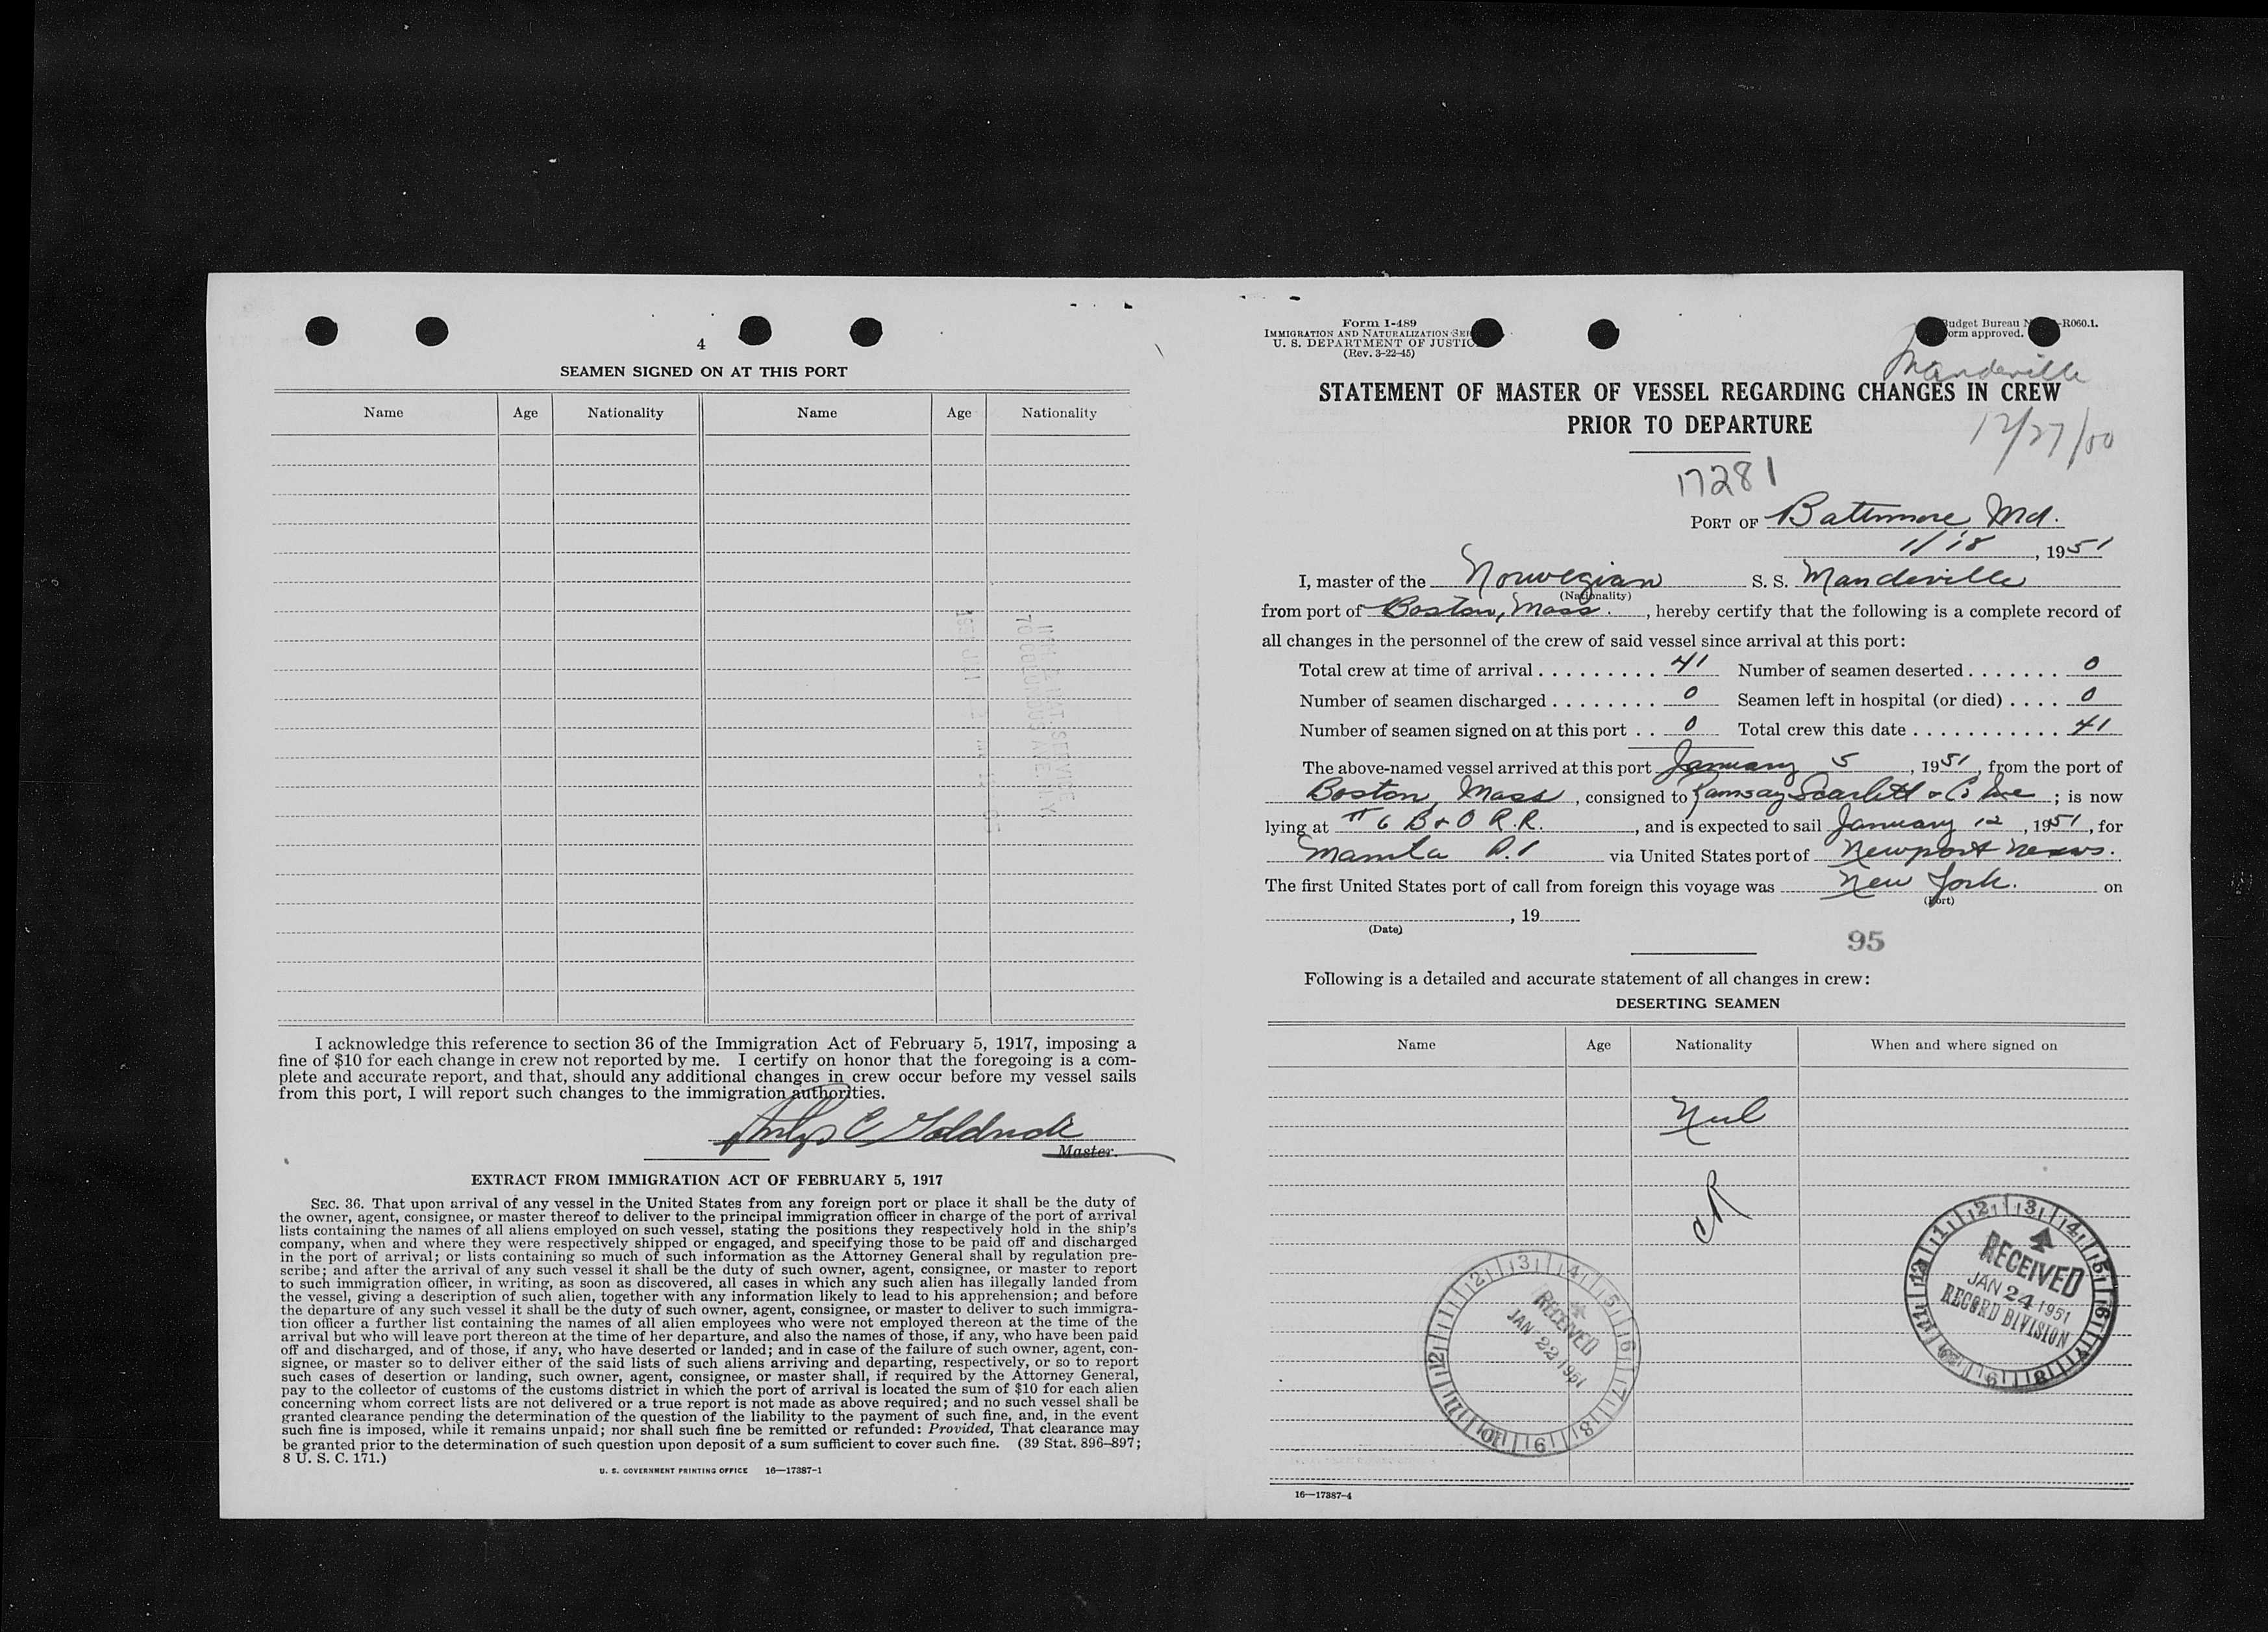 4
SEAMEN SIGNED ON AT THIS PORT
Name Age Nationality Name Age Nationality
I acknowledge this reference to section 36 of the Immigration Act of February 5, 1917, imposing a
fine of $10 for each change in crew not reported by me. I certify on honor that the foregoing is a com-
plete and accurate report, and that, should any additional changes in crew occur before my vessel sails
from this port, I will report such changes to the immigration authorities.
Master.
EXTRACT FROM IMMIGRATION ACT OF FEBRUARY 5, 1917
SEC. 36. That upon arrival of any vessel in the United States from any foreign port or place it shall be the duty of
the owner, agent, consignee, or master thereof to deliver to the principal immigration officer in charge of the port of arrival
lists containing the names of all aliens employed on such vessel, stating the positions they respectively hold in the ship's
company, when and where they were respectively shipped or engaged, and specifying those to be paid off and discharged
in the port of arrival; or lists containing so much of such information as the Attorney General shall by regulation pre-
scribe; and after the arrival of any such vessel it shall be the duty of such owner, agent, consignee, or master to report
to such immigration officer, in writing, as soon as discovered, all cases in which any such alien has illegally landed from
the vessel, giving a description of such alien, together with any information likely to lead to his apprehension; and before
the departure of any such vessel it shall be the duty of such owner, agent, consignee, or master to deliver to such immigra-
tion officer a further list containing the names of all alien employees who were not employed thereon at the time of the
arrival but who will leave port thereon at the time of her departure, and also the names of those, if any, who have been paid
off and discharged, and of those, if any, who have deserted or landed; and in case of the failure of such owner, agent, con-
signee, or master so to deliver either of the said lists of such aliens arriving and departing, respectively, or so to report
such cases of desertion or landing, such owner, agent, consignee, or master shall, if required by the Attorney General,
pay to the collector of customs of the customs district in which the port of arrival is located the sum of $10 for each alien
concerning whom correct lists are not delivered or a true report is not made as above required; and no such vessel shall be
granted clearance pending the determination of the question of the liability to the payment of such fine, and, in the event
such fine is imposed, while it remains unpaid; nor shall such fine be remitted or refunded: Provided, That clearance may
be granted prior to the determination of such question upon deposit of a sum sufficient to cover such fine. (39 Stat. 896–897;
8 U. S. C. 171.)
U. S. GOVERNMENT PRINTING OFFICE 16—17387-1
Form I-489
IMMIGRATION AND NATURALIZATION SER
U. S. DEPARTMENT OF JUSTIC
(Rev. 3-22-45)
Budget Bureau N -R060.1.
orm approved.
Mandeville
STATEMENT OF MASTER OF VESSEL REGARDING CHANGES IN CREW
PRIOR TO DEPARTURE
12/27/50
17281
PORT OF Batimore Md.
1/18, 1951
I, master of the Norwegian S. S. Mandeville
(Nationality)
from port of Boston, Mass., hereby certify that the following is a complete record of
all changes in the personnel of the crew of said vessel since arrival at this port:
Total crew at time of arrival . . . . . . . . . 41 Number of seamen deserted . . . . . . . 0
Number of seamen discharged . . . . . . . . 0 Seamen left in hospital (or died) . . . . 0
Number of seamen signed on at this port . . 0 Total crew this date . . . . . . . . . . . 41
The above-named vessel arrived at this port January 5, 1951, from the port of
Boston, Mass, consigned to Ramsay Scarlett & Co Inc; is now
lying at 6 B & O R.R., and is expected to sail January 12, 1951, for
Manila P.I via United States port of Newport News.
The first United States port of call from foreign this voyage was New York. on
(Port)
, 19
(Date)
95
Following is a detailed and accurate statement of all changes in crew:
DESERTING SEAMEN
Name Age Nationality When and where signed on
Nil
RECEIVED
JAN 22 1951
RECEIVED
JAN 24 1951
RECORD DIVISION
16—17387-4